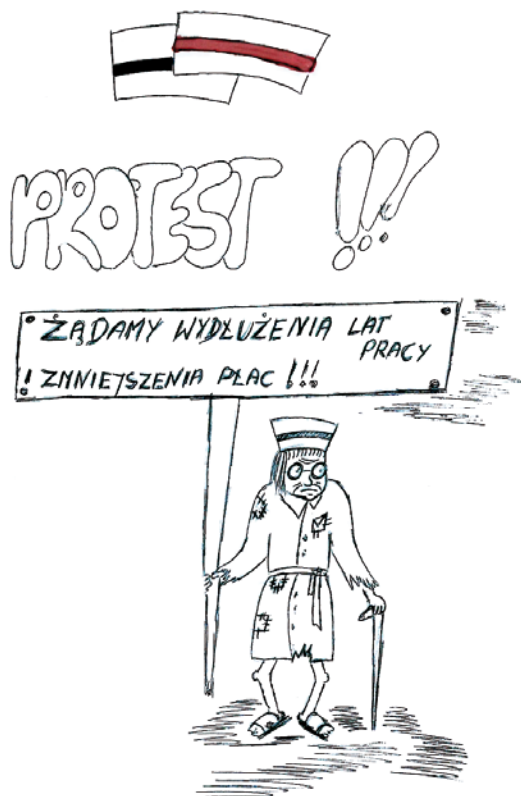 PROTEST !!!
ŻĄDAMY WYDŁUŻENIA LAT
PRACY
! ZMNIEJSZENIA PŁAC !!!